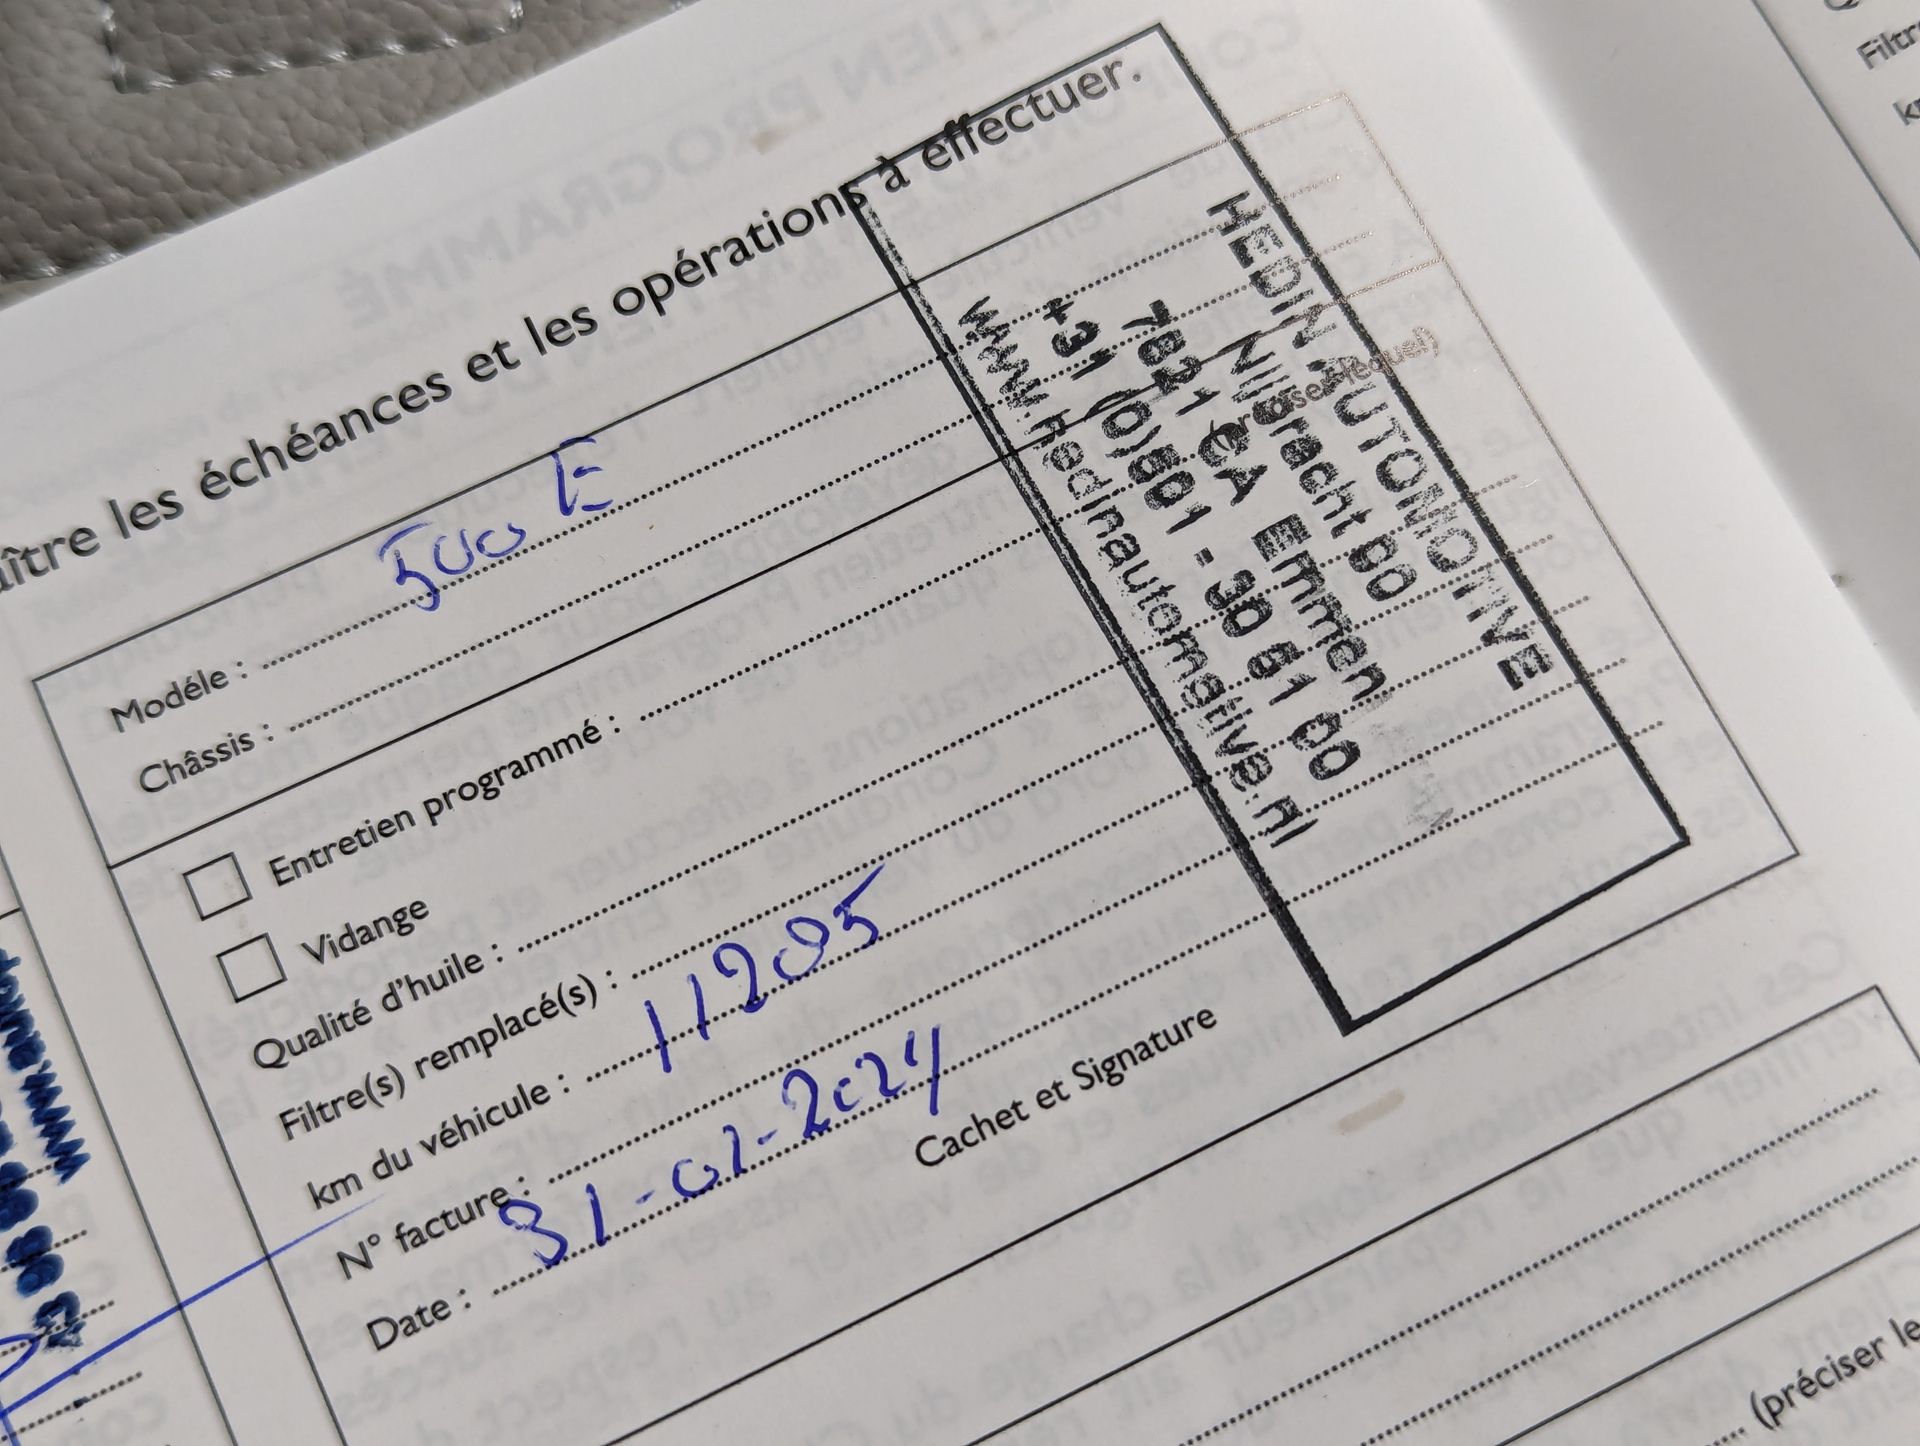 aître les échéances et les opérations à effectuer.
Modéle : 500 E
Châssis :
Entretien programmé :
Vidange
Qualité d'huile :
Filtre(s) remplacé(s) :
km du véhicule : 11205
N° facture :
Date : 31-01-2024
Cachet et Signature
HEDIN AUTOMOTIVE
Nijbracht 80
7821 CA Emmen
+31 (0)591 - 30 61 00
www.hedinautomotive.nl
(préciser le
Filtr
www